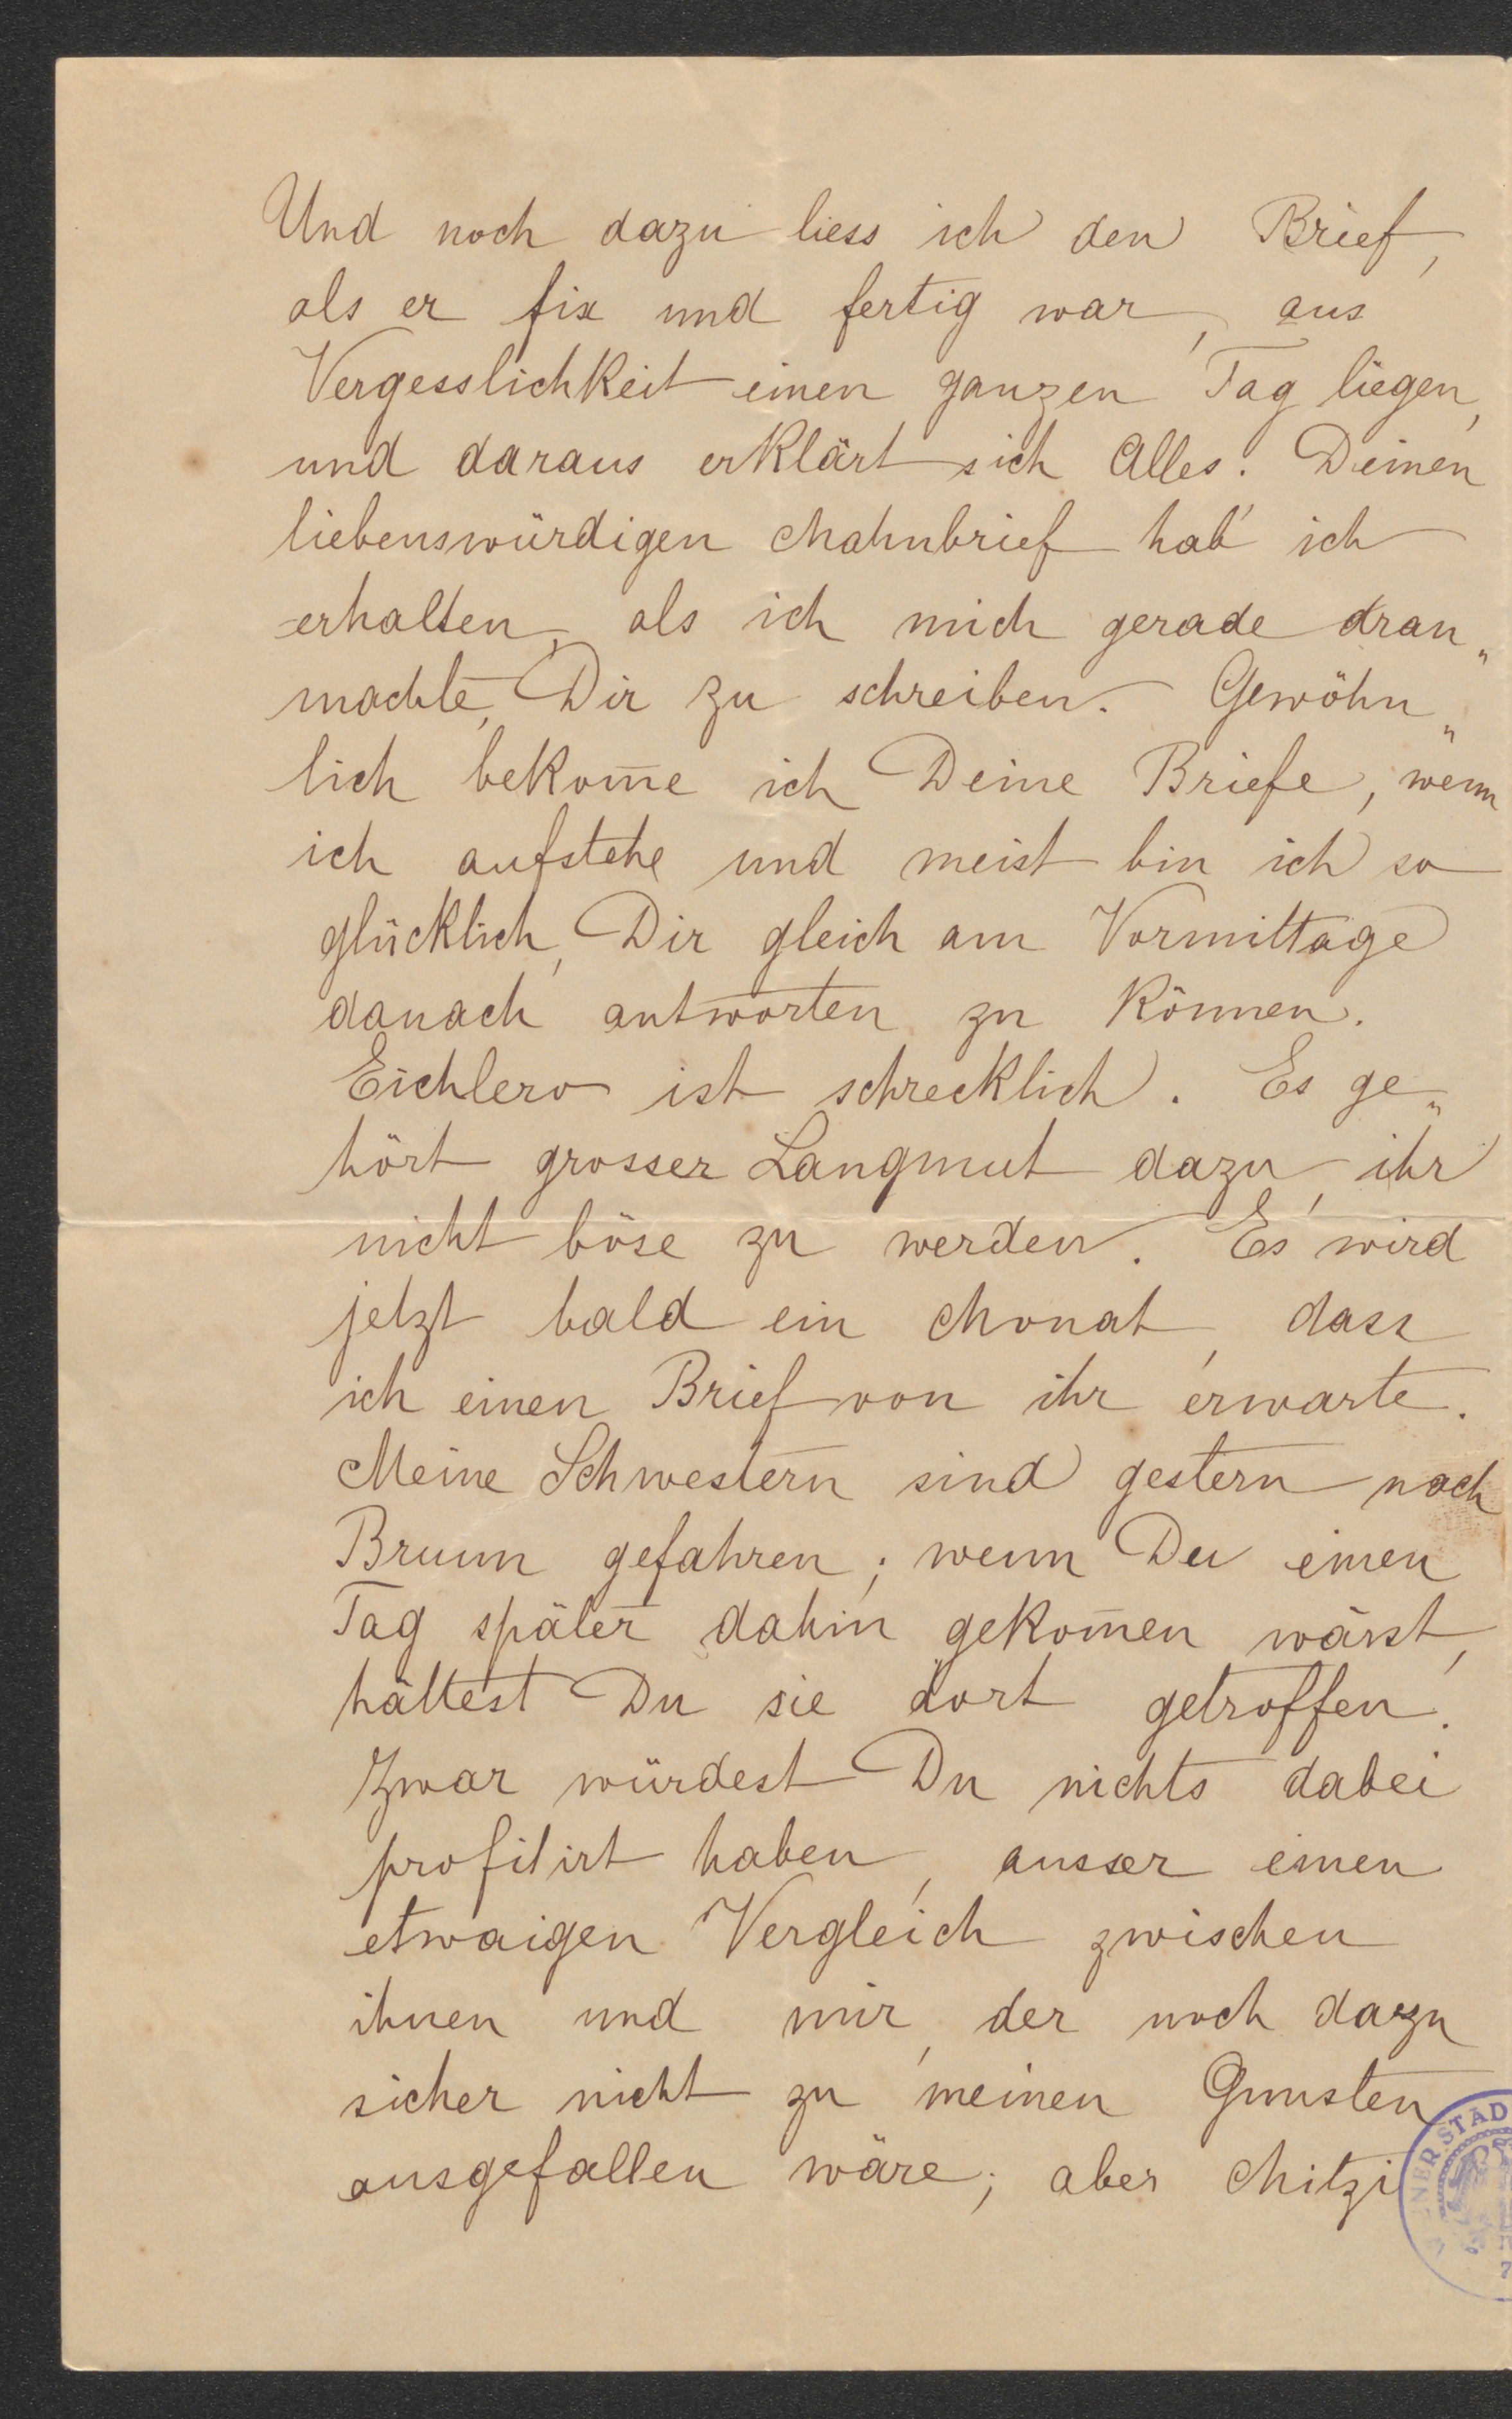 Und noch dazu liess ich den Brief,
als er fix und fertig war, aus
Vergesslichkeit einen ganzen Tag liegen,
und daraus erklärt sich Alles. Deinen
liebenswürdigen Mahnbrief hab' ich
erhalten, als ich mich gerade dran„
machte, Dir zu schreiben. Gewöhn„
lich bekom̅e ich Deine Briefe, wenn
ich aufstehe und meist bin ich so
glücklich, Dir gleich am Vormittage
danach antworten zu können.
Eichlero ist schrecklich. Es ge„
hört grosser Langmut dazu, ihr
nicht böse zu werden. Es wird
jetzt bald ein Monat, dass
ich einen Brief von ihr erwarte.
Meine Schwestern sind gestern nach
Brunn gefahren; wenn Du einen
Tag später dahin gekom̅en wärst,
hättest Du sie dort getroffen.
Zwar würdest Du nichts dabei
profitirt haben, ausser einen
etwaigen Vergleich zwischen
ihnen und mir, der noch dazu
sicher nicht zu meinen Gunsten
ausgefallen wäre; aber Mitzi
NER STÄD